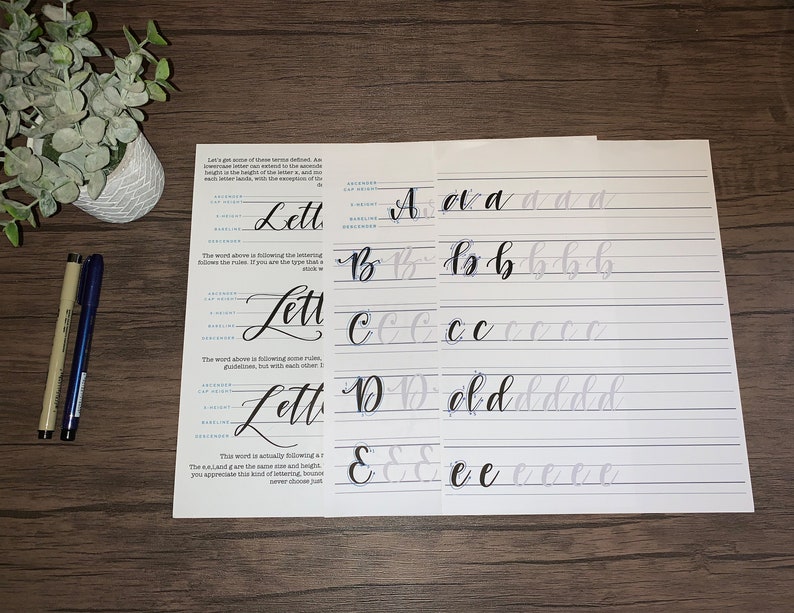 Let's get some of these terms defined. As
lowercase letter can extend to the ascende
height is the height of the letter x, and mo
each letter, with the exception of the
de
ASCENDER
CAP HEIGHT
X-HEIGHT
BASELINE
DESCENDER
Lette
The word above is following the lettering
follows the rules. If you are the type that s
stick w
ASCENDER
CAP HEIGHT
X-HEIGHT
BASELINE
DESCENDER
Lette
The word above is following some rules,
guidelines, but with each other. I
ASCENDER
CAP HEIGHT
X-HEIGHT
BASELINE
DESCENDER
Lette
This word is actually following a r
The e,e,l,and g are the same size and height.
you appreciate this kind of lettering, bounce
never choose just
ASCENDER
CAP HEIGHT
X-HEIGHT
BASELINE
DESCENDER
A
B B
C C C
D D
E E E
a a a a a
b b b b b b
c c c c c c
d d d d d d
e e e e e e